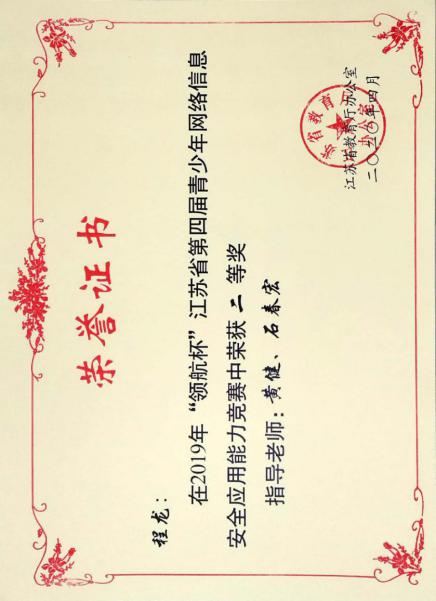 荣誉证书
程龙：
在2019年“领航杯”江苏省第四届青少年网络信息
安全应用能力竞赛中荣获 二 等奖
指导老师：黄健、石春宏
江苏省教育厅办公室
二〇二〇年四月